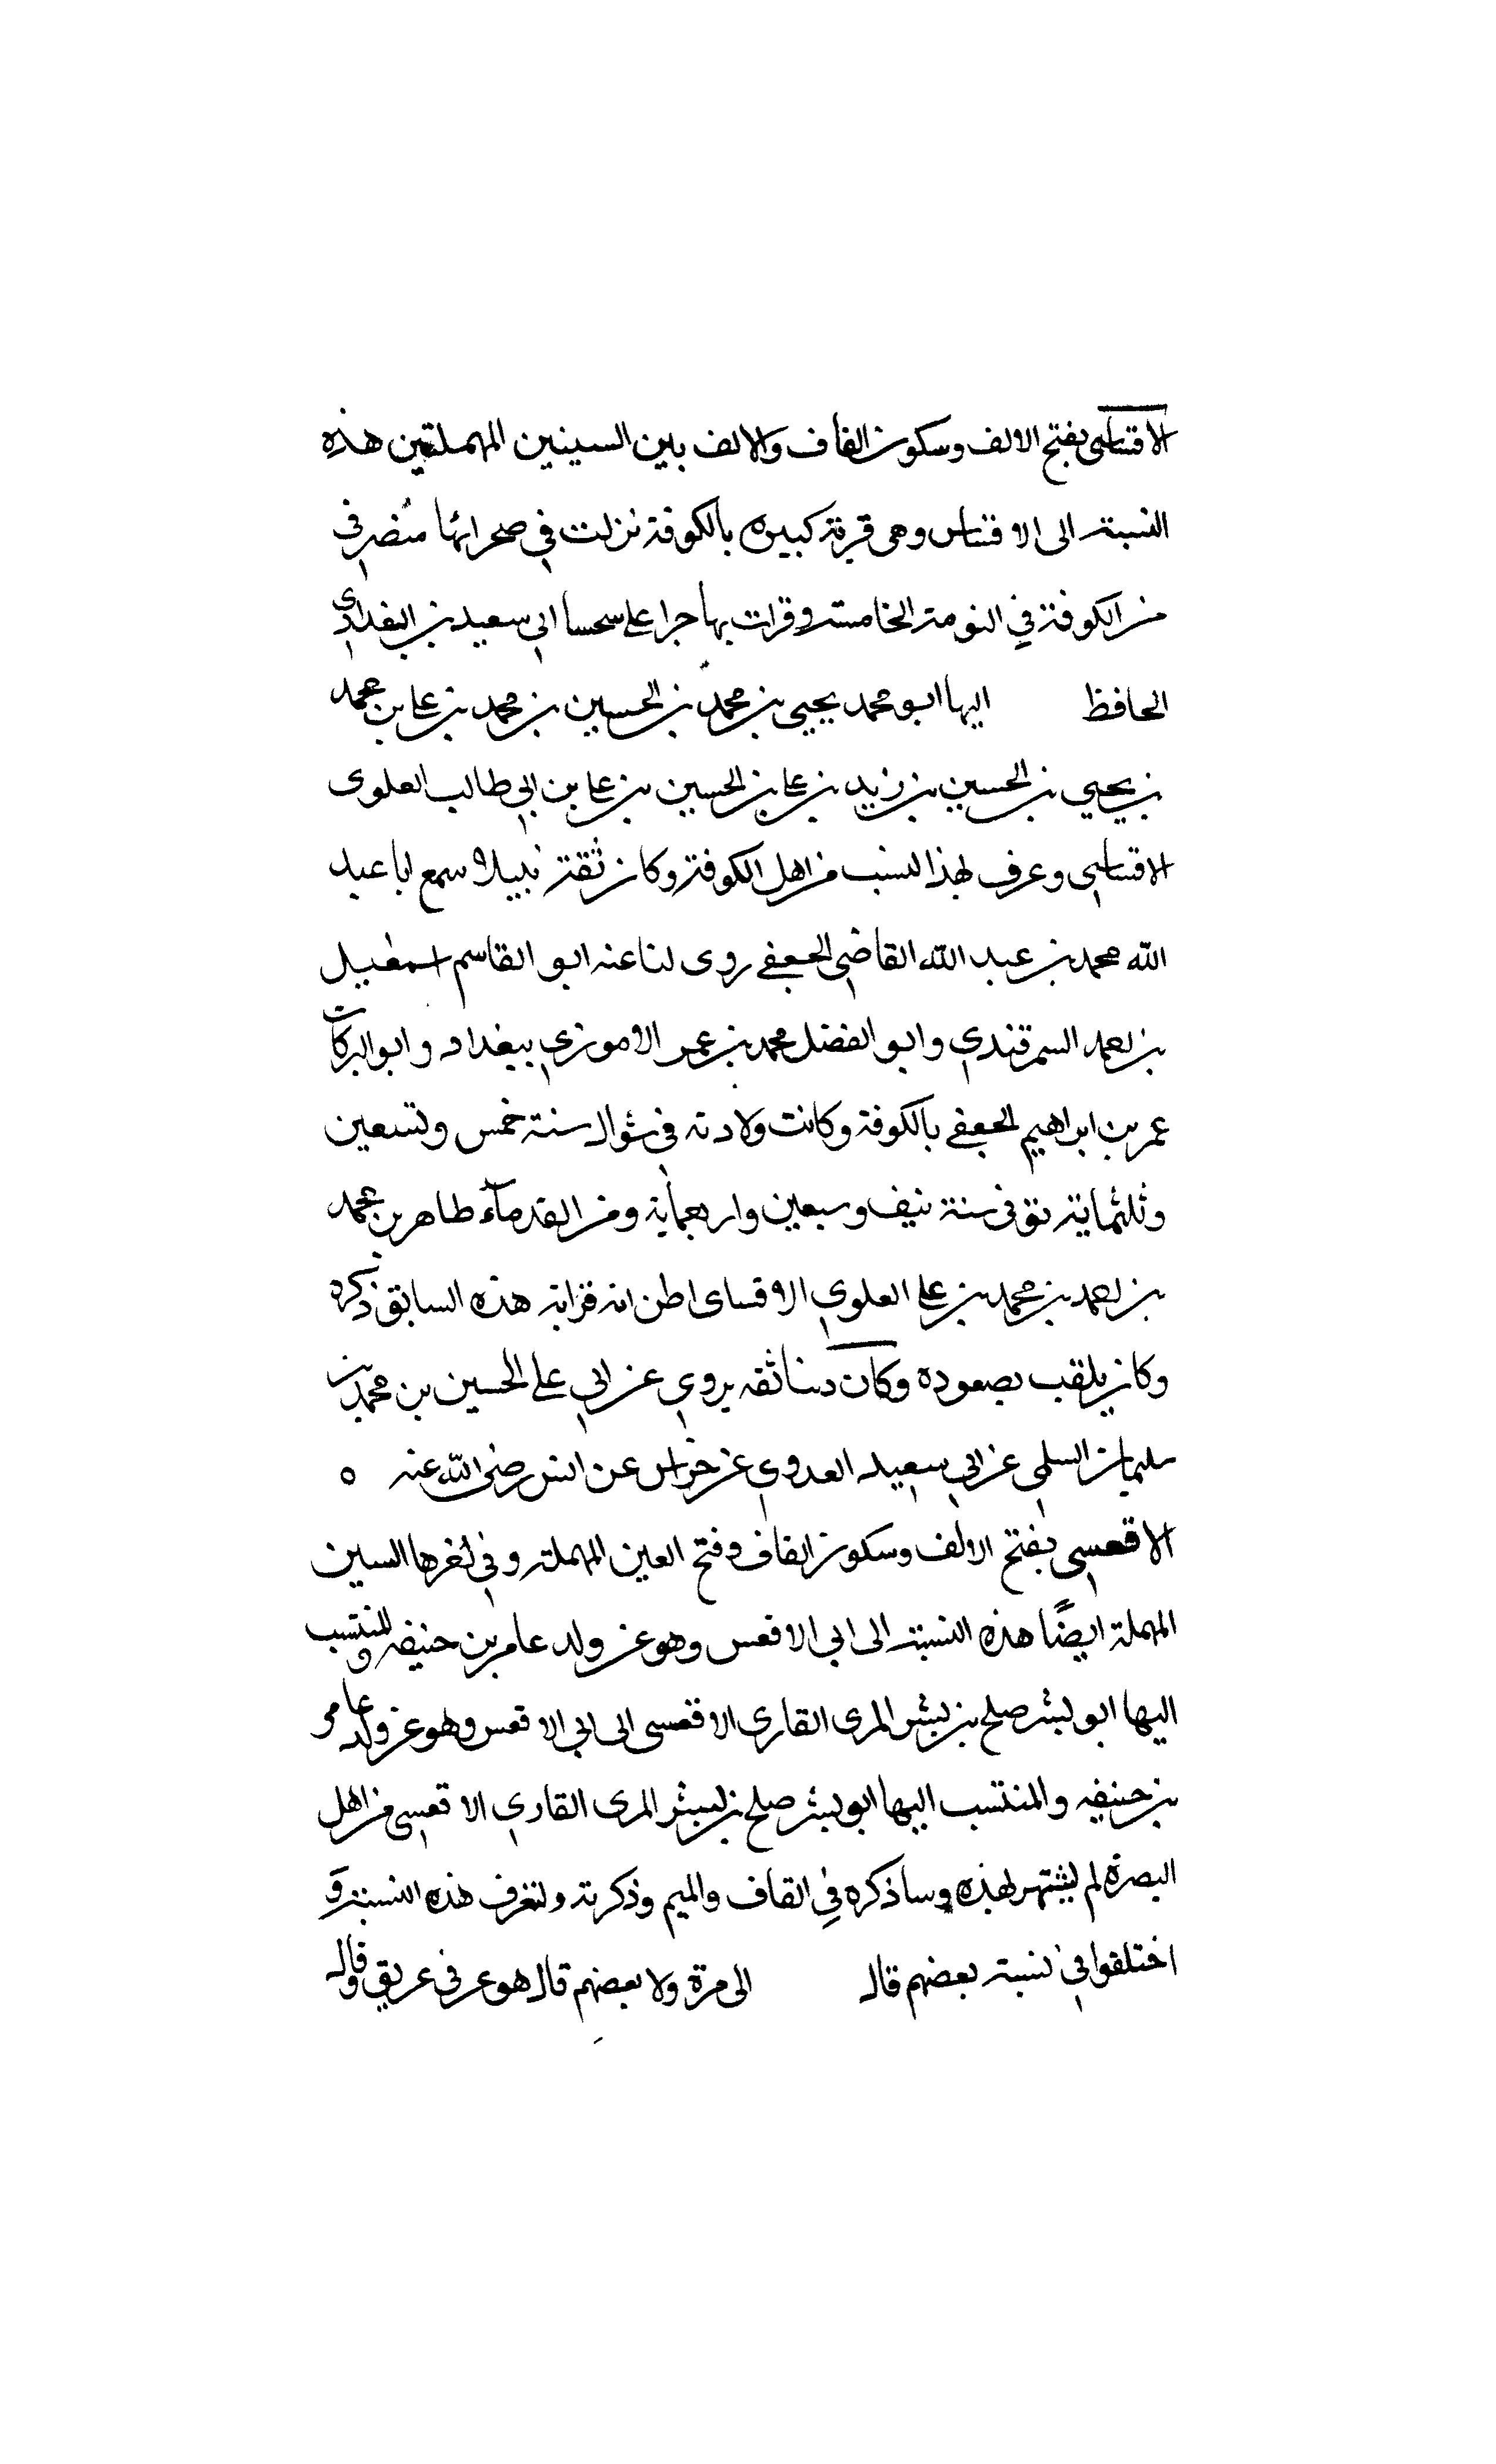 الاقساسى بفتح الالف وسكون القاف والالف بين السينين المهملتين هذه
النسبة الى الاقساس وهى قرية كبيرة بالكوفة نزلت في صحرائها منصرفى
من الكوفة في النوبة الخامسة وقرات بها جزا على ابى سعيد بن البغدادى
الحافظ اليها ابو محمد يحيى بن محمد بن الحسين بن محمد بن على بن محمد
بن يحيي بن الحسين بن زيد بن على بن الحسين بن على بن ابي طالب العلوى
الاقساسى وعرف بهذا النسب من اهل الكوفة وكان ثقة نبيلا سمع ابا عبد
الله محمد بن عبد الله القاضى الجعفي روى لنا عنه ابو القاسم اسمعيل
بن احمد السمرقندي وابو الفضل محمد بن عمر الاموزي ببغداد وابو البركات
عمر بن ابراهيم الجعفي بالكوفة وكانت ولادته في شوال سنة خمس وتسعين
وثلثماية توفى سنة نيف وسبعين واربعماية ومن القدماء طاهر بن محمد
بن احمد بن محمد بن على العلوي الاقساى اظن انه قرابة هذه السابق ذكره
وكان يلقب بصعوده وكان دينا ثقه يروي عن ابي على الحسين بن محمد بن
سليمان السلمى عن ابي سعيد العدوي عن خراس عن انس رضى الله عنه ه
الاقعسى بفتح الالف وسكون القاف وفتح العين المهملة وفي اخرها السين
المهملة ايضًا هذه النسبة الى ابي الاقعس وهو عن ولد عامر بن حنيفه والمنتسب
اليها ابو بشر صلح بن بشر المرى القارى الاقعسى الى ابي الاقعس وهو عن ولد عامر
بن حنيفه والمنتسب اليها ابو بشر صلح بن بشر المرى القاري الاقعسى من اهل
البصرة لم يشتهر بهذه وساذكره في القاف والميم وذكرته ولتعرف هذه النسبة و
اختلفوا في نسبته بعضهم قال الى مرة ولا بعضهم قال هو عرفى عريق وقال